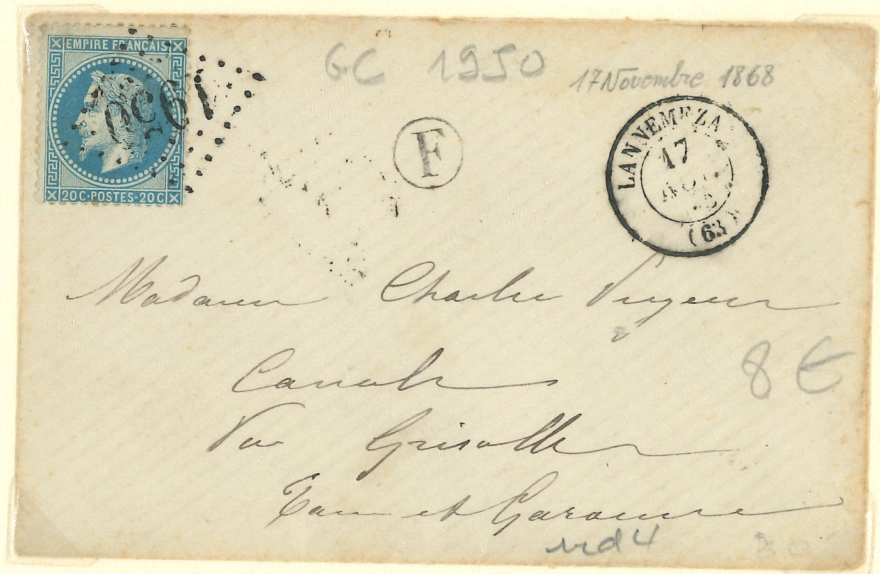 EMPIRE FRANÇAIS
1950
20C·POSTES·20C
GC 1950
17 Novembre 1868
F
LANNEMEZAN
17
(63)
Madame Charles
Canals
Par Grisolles
Tarn et Garonne
8 €